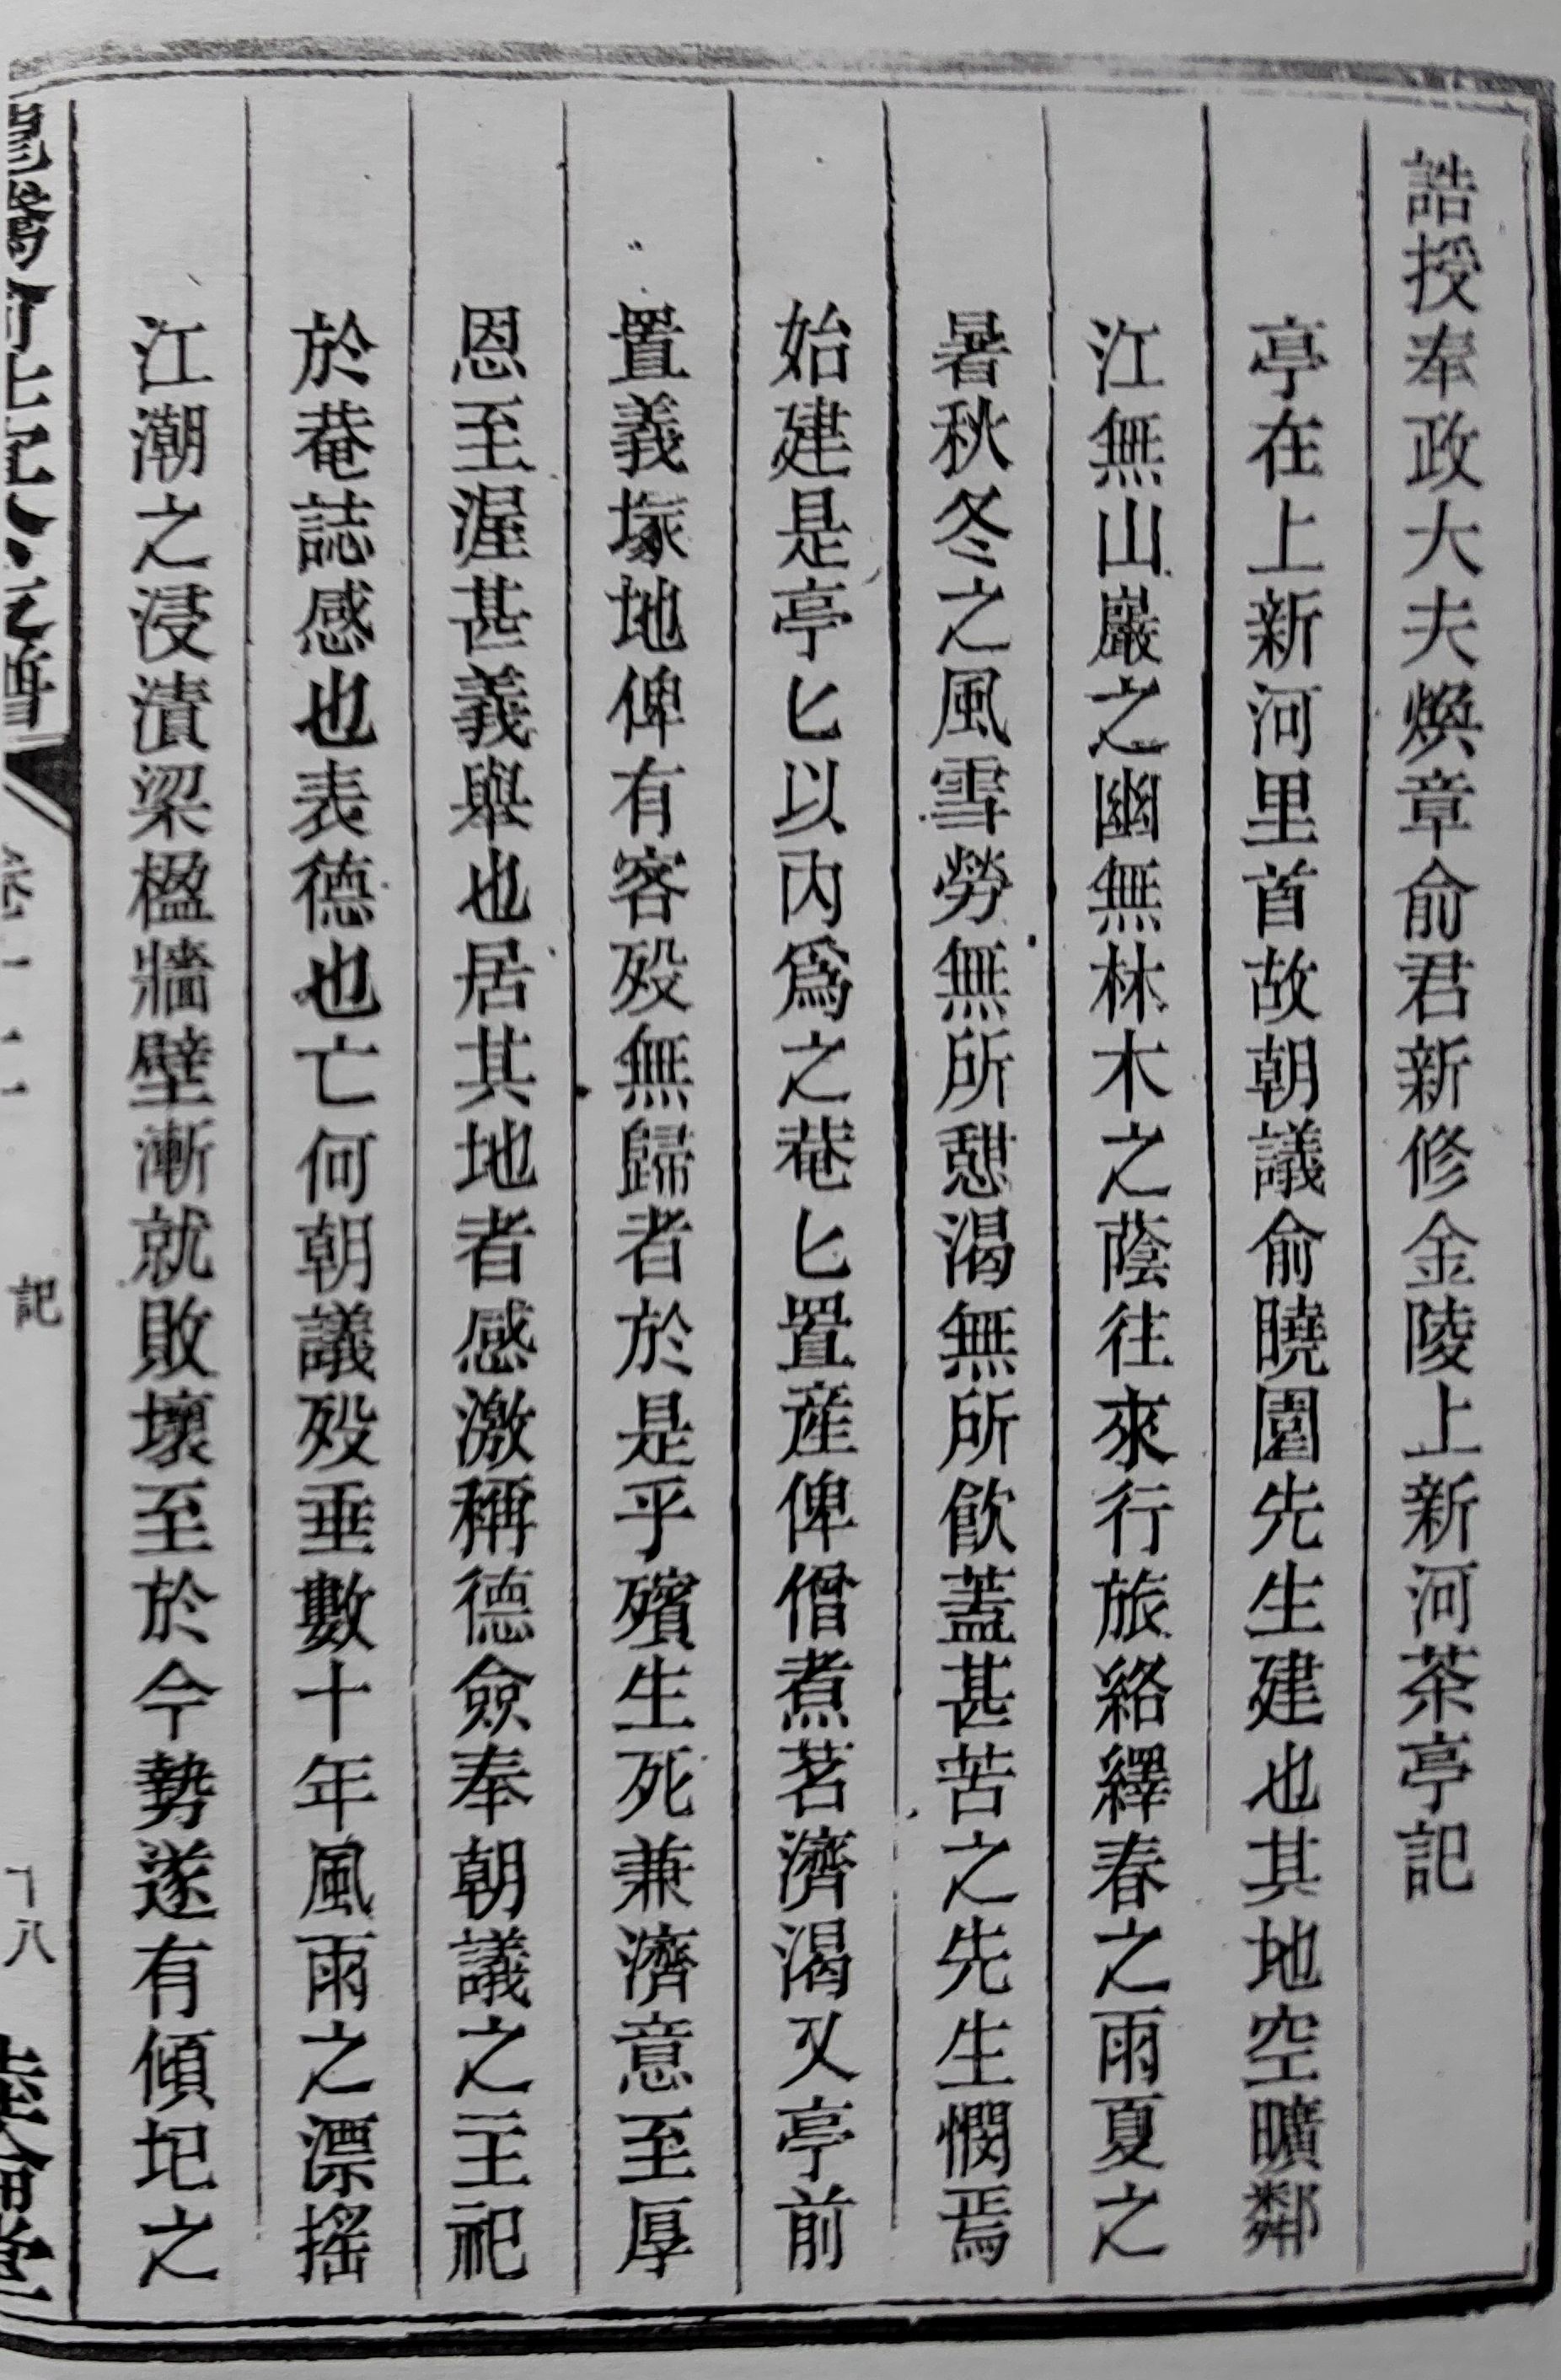 誥授奉政大夫煥章俞君新修金陵上新河茶亭記
亭在上新河里首故朝議俞曉園先生建也其地空曠鄰
江無山巖之幽無林木之蔭往來行旅絡繹春之雨夏之
暑秋冬之風雪勞無所憩渴無所飲蓋甚苦之先生憫焉
始建是亭匕以內爲之菴匕置産俾僧煮茗濟渴又亭前
置義塚地俾有客歿無歸者於是乎殯生死兼濟意至厚
恩至渥甚義舉也居其地者感激稱德僉奉朝議之主祀
於菴誌感也表德也亡何朝議歿垂數十年風雨之漂搖
江潮之浸漬梁楹牆壁漸就敗壞至於今勢遂有傾圮之
記
十八